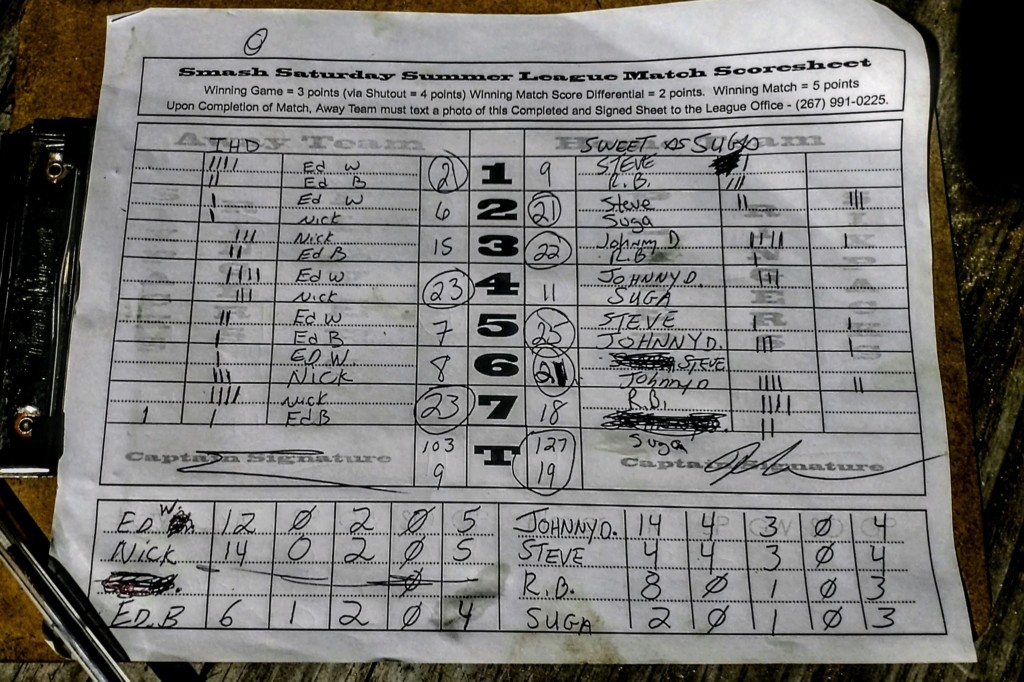 Smash Saturday Summer League Match Scoresheet
Winning Game = 3 points (via Shutout = 4 points) Winning Match Score Differential = 2 points. Winning Match = 5 points
Upon Completion of Match, Away Team must text a photo of this Completed and Signed Sheet to the League Office - (267) 991-0225.
Away Team THD Home Team SWEET AS SUGA
Ed W 21 1 9 STEVE
Ed B R.B.
Ed W 6 2 21 Steve
Nick Suga
Nick 15 3 22 Johnny D
Ed B R.B
Ed W 23 4 11 JOHNNY D.
Nick SUGA
Ed W 7 5 25 STEVE
Ed B JOHNNY D.
ED W. 8 6 21 STEVE
NICK Johnny D
Nick 23 7 18 R.B.
1 Ed B
Suga
103 T 127
Captain Signature 9 19 Captain Signature
ED W. 12 0 2 0 5 JOHNNY D. 14 4 3 0 4
NICK 14 0 2 0 5 STEVE 4 4 3 0 4
0 R.B. 8 0 1 0 3
ED.B 6 1 2 0 4 SUGA 2 0 1 0 3